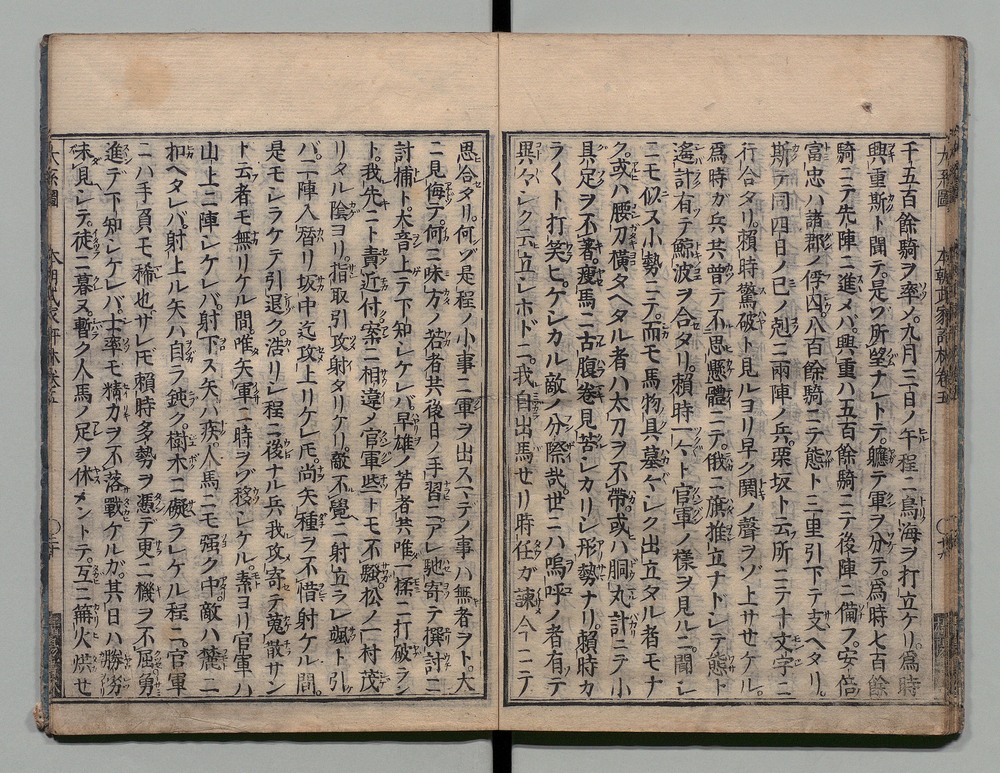 千五百餘騎ヲ率ノ。九月三日ノ午程ニ鳥海ヲ打立ケリ。爲時
興重斯ト聞テ。是ゾ所望ナレトテ。軈テ軍ヲ分テ。爲時七百餘
騎ニテ先陣ニ進メバ。興重ハ五百餘騎ニテ後陣ニ備フ。安倍
富忠ハ諸郡ノ俘囚。八百餘騎ニテ態ト三里引下テ支ヘタリ。
斯テ同四日ノ巳ノ剋ニ兩陣ノ兵。栗坂ト云所ニテ十文字ニ
行合タリ。賴時驚破ト見ルヨリ早ク関ノ聲ヲゾ上サセケル。
爲時ガ兵共曽テ不思懸體ニテ。俄ニ旗推立ナドレテ態ト
遙計有テ鯨波ヲ合タリ。賴時一々ト官軍ノ樣ヲ見ルニ。聞レ
ニモ似ス小勢ニテ。而モ馬物具墓々レク出立タル者モナ
ク。或ハ腰刀横タヘタル者ハ太刀ヲ不帶。或ハ胴丸計ニテ小
具足ヲ不著。瘦馬ニ古腹卷見苦レカリレ形勢ナリ。賴時カ
ラ〱ト打笑ヒ。ケレカル敵ノ分際哉。世ニハ嗚呼ノ者有テ
異々レク云立レホドニ。我自出馬セリ時任ガ諫今コニテ
思合タリ。何ゾ是程ノ小事ニ軍ヲ出スニテノ事ハ無者ヲト。大
ニ見侮テ。何ニ味方ノ若者共後日ノ手習ニ。アレ馳寄テ撰討ニ
討捕ト。大音上テ下知レケレバ。早雄ノ若者共唯一揉ニ打破ラン
ト。我先ニト責近付案ニ相違ノ官軍些トモ不騷。松ノ一村茂
リタル陰ヨリ。指取引攻射タリケリ。敵不覺ニ射立ラレ颯ト引
バ。二陣入替リ坂中迄攻上リケレ𪜈。尚矢種ヲ不惜射ケル間。
是モレラケテ引退ク。浩リレ程ニ後ナル兵我攻寄テ蒐散サン
ト云者モ無リケル間。唯矢軍ニ時ヲゾ移レケル。素ヨリ官軍ハ
山上ニ陣レケレバ。射下ス矢ハ疾。人馬ニモ强ク中。敵ハ麓ニ
扣ヘタレバ。射上ル矢ハ自ラ鈍ク。樹木ニ礙ラレケル程ニ。官軍
ニハ手負モ稀也。ザレ𪜈賴時多勢ヲ憑テ更ニ機ヲ不屈。勇
進テ下知レケレバ。士率モ精力ヲ不落戰ケルガ。其日ハ勝劣
未見レテ。徒ニ暮ヌ。暫ク人馬ノ足ヲ休メントテ。互ニ篝火燒セ